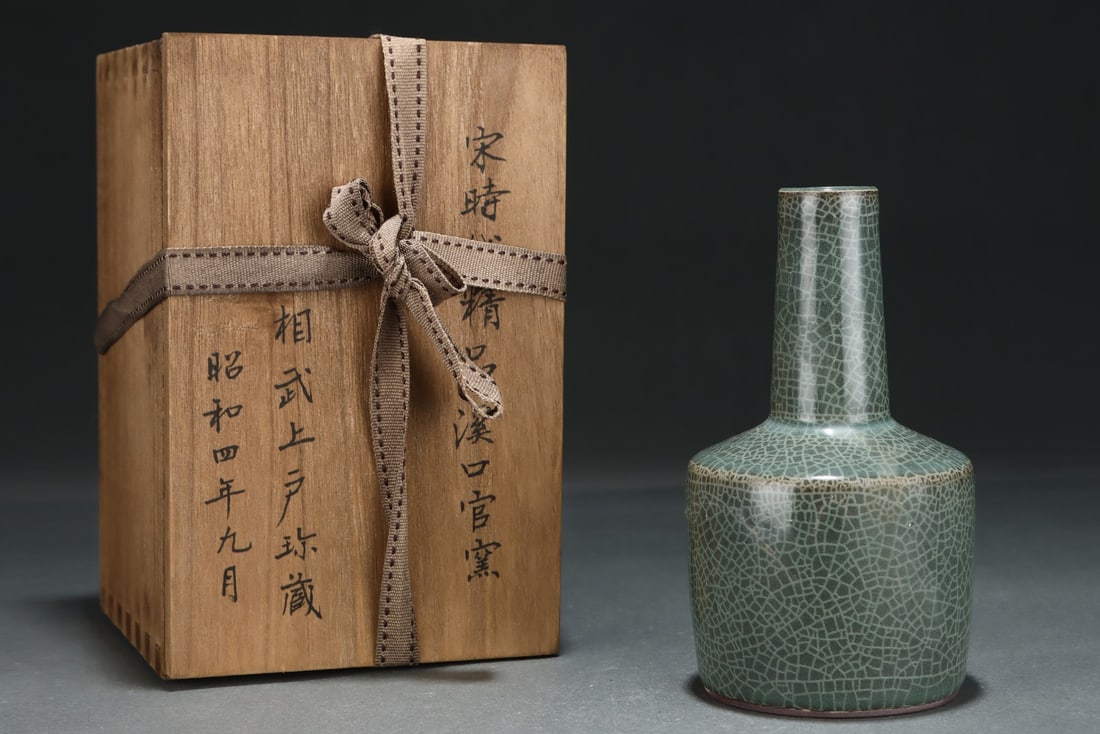 宋時精品溪口官窯
相武上戸珎蔵
昭和四年九月